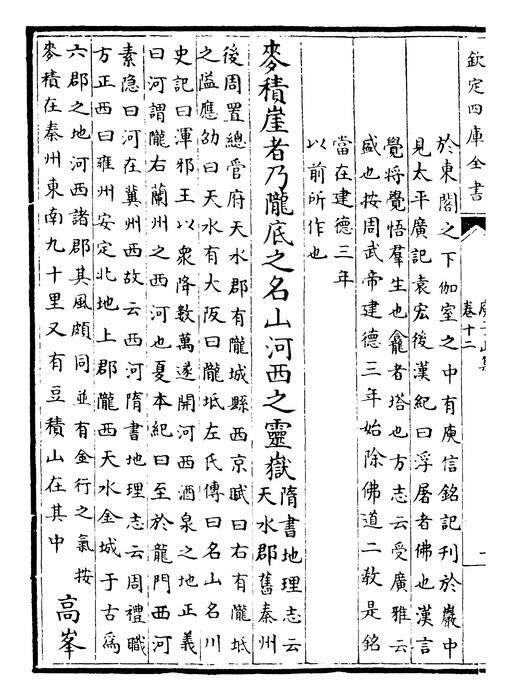 欽定四庫全書
卷十二
於東閣之下伽室之中有庾信銘記刋於巖中
見太平廣記袁宏後漢紀曰浮屠者佛也漢言
覺將覺悟羣生也龕者塔也方志云受廣雅云
盛也按周武帝建德三年始除佛道二教是銘
當在建德三年
以前所作也
麥積崖者乃隴底之名山河西之靈嶽
隋書地理志云
天水郡舊秦州
後周置總管府天水郡有隴城縣西京賦曰右有隴坻
之隘應劭曰天水有大阪曰隴坻左氏傳曰名山名川
史記曰渾邪王以衆降數萬遂開河西酒泉之地正義
曰河謂隴右蘭州之西河也夏本紀曰至於龍門西河
素隐曰河在冀州西故云西河隋書地理志云周禮職
方正西曰雍州安定北地上郡隴西天水金城于古爲
六郡之地河西諸郡其風頗同並有金行之氣按
麥積在秦州東南九十里又有豆積山在其中
高峯